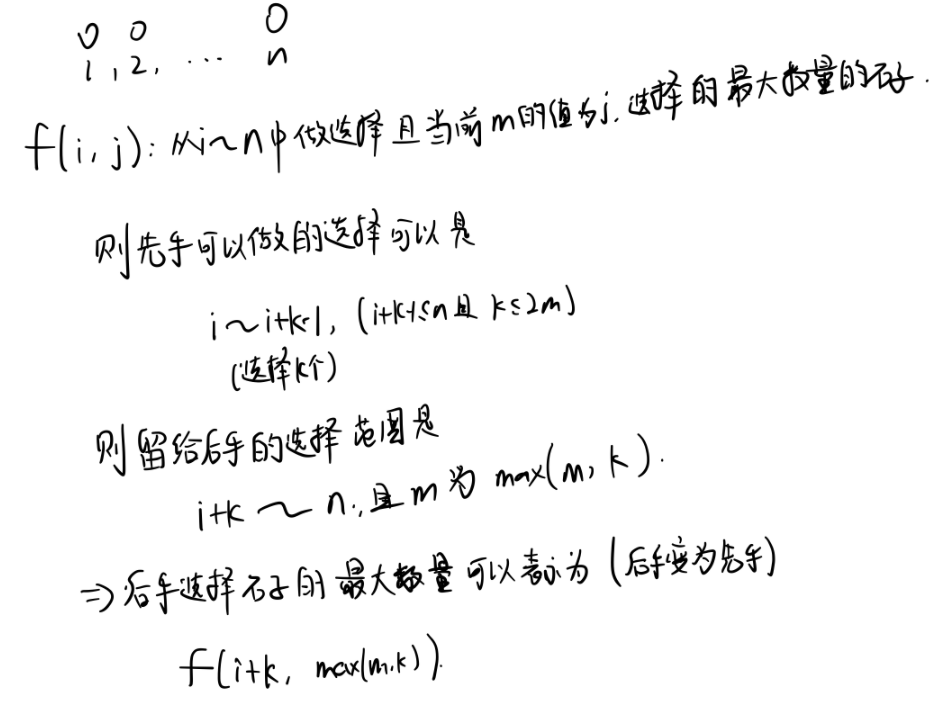 0 0 0
1, 2, ... n
f(i, j): 从i~n中做选择且当前m的值为j, 选择的最大数量的石子.
则先手可以做的选择可以是
i~i+k-1, (i+k-1≤n且 k≤2m)
(选择k个)
则留给后手的选择范围是
i+k ~ n, 且m为 max(m, k).
⇒ 后手选择石子的最大数量可以表示为 (后手变为先手)
f(i+k, max(m,k)).